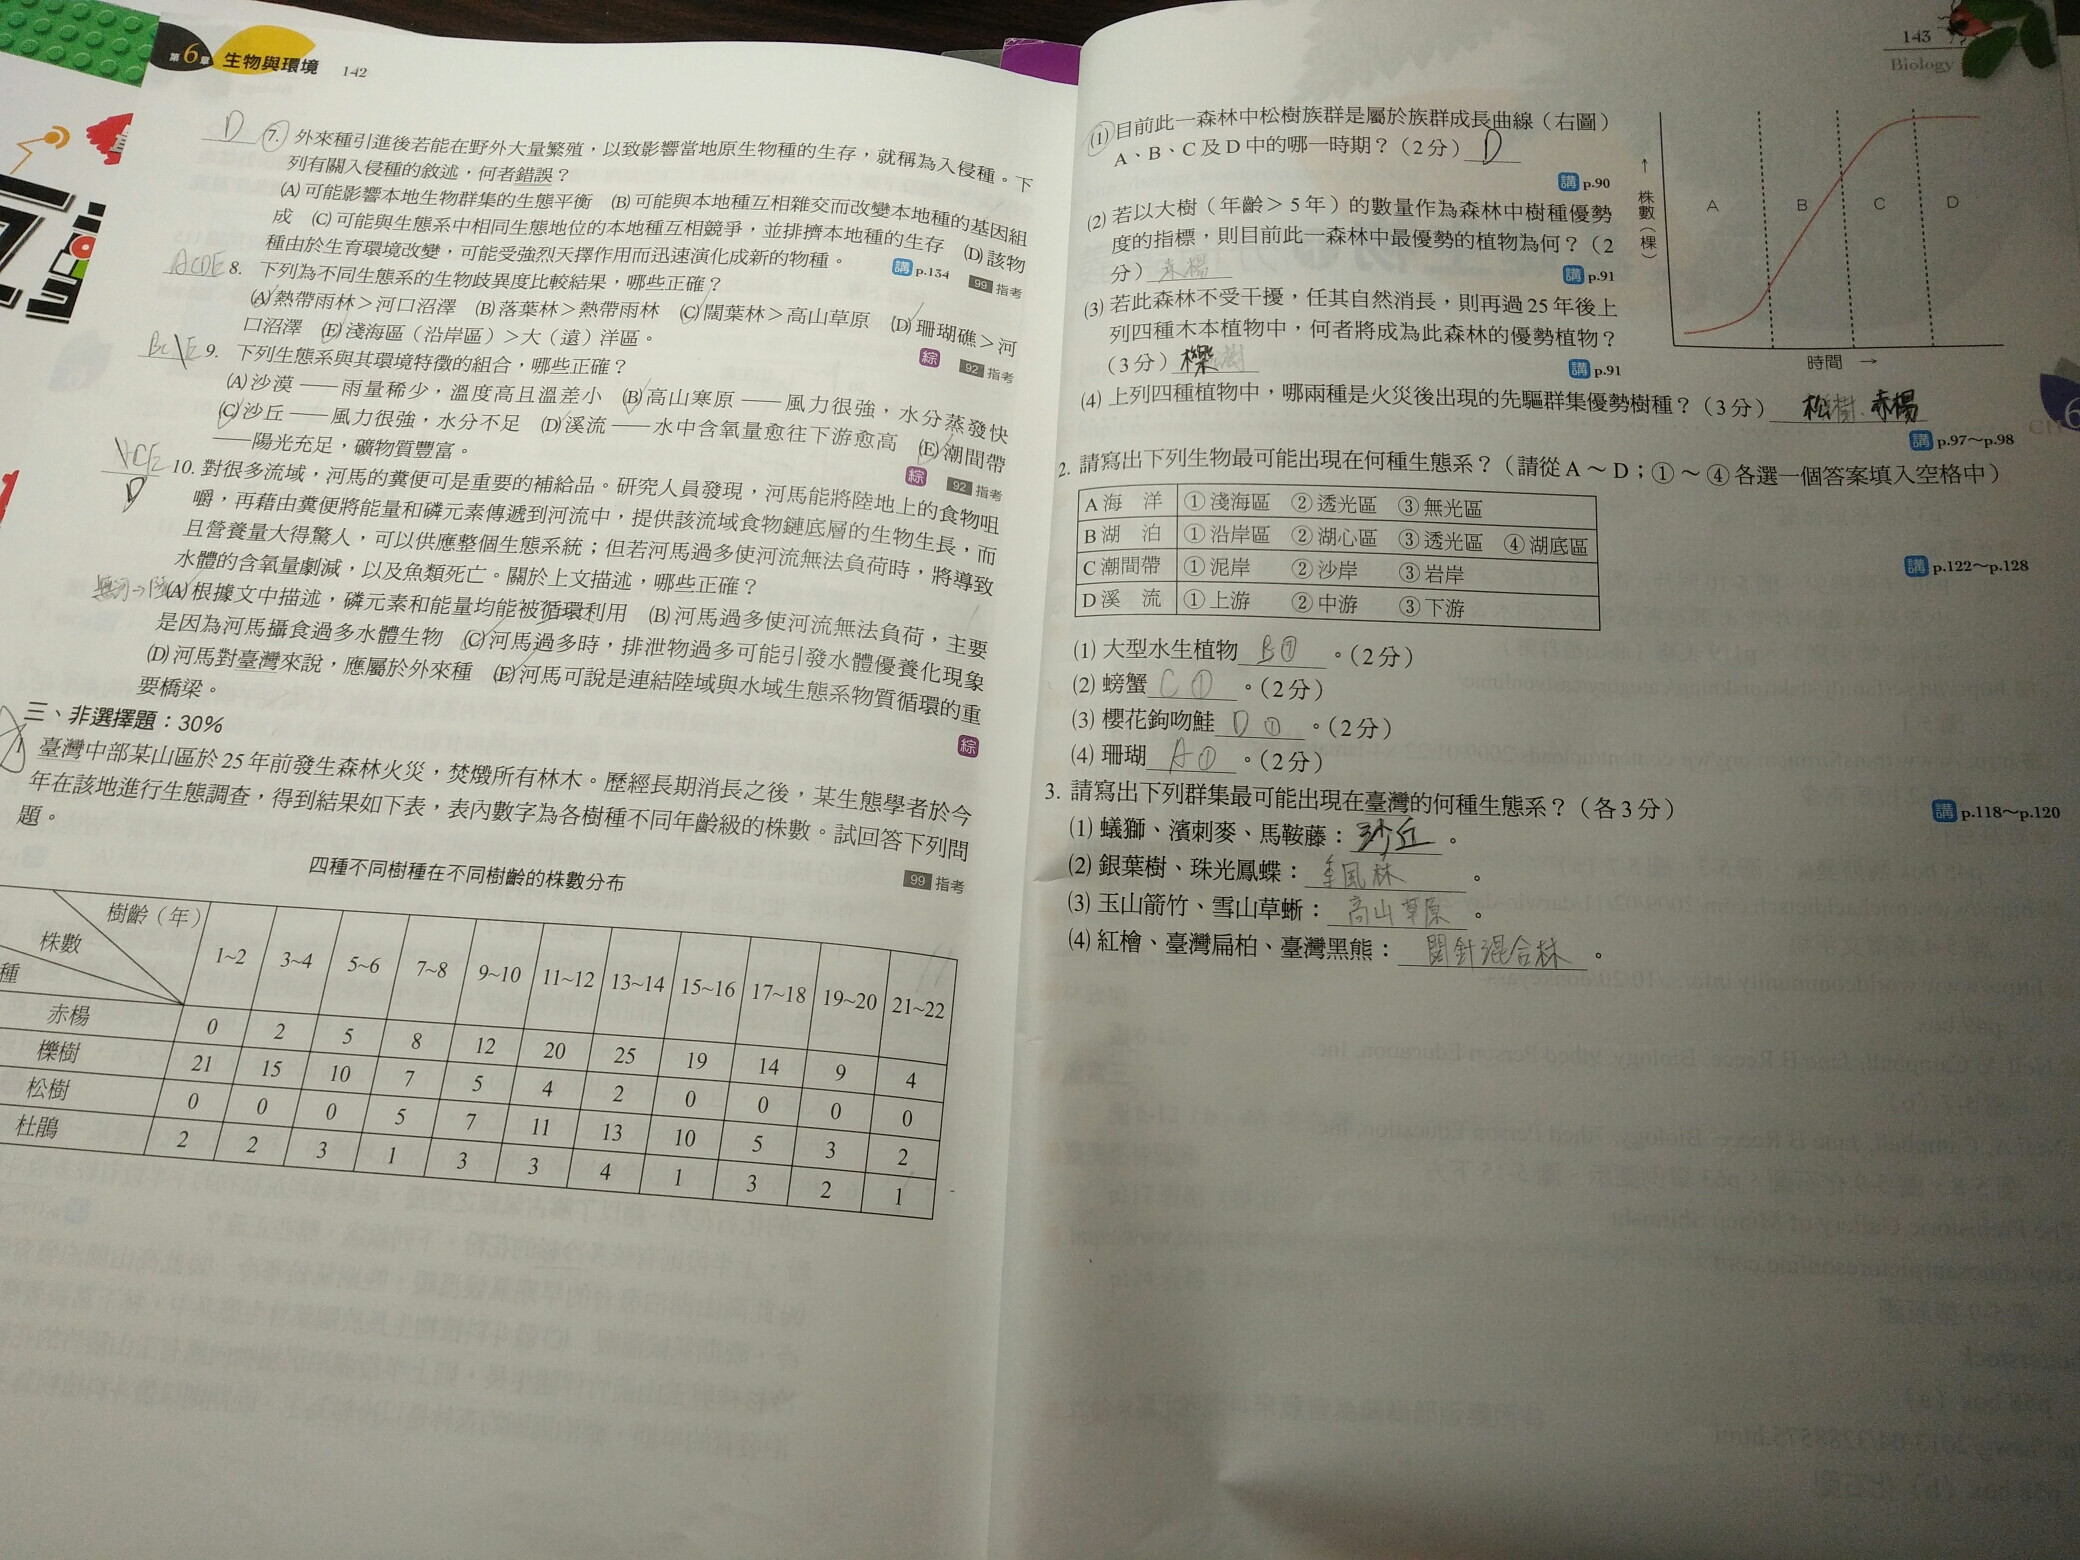 第6章 生物與環境 142
D 7. 外來種引進後若能在野外大量繁殖，以致影響當地原生物種的生存，就稱為入侵種。下
列有關入侵種的敘述，何者錯誤？
(A)可能影響本地生物群集的生態平衡 (B)可能與本地種互相雜交而改變本地種的基因組
成 (C)可能與生態系中相同生態地位的本地種互相競爭，並排擠本地種的生存 (D)該物
種由於生育環境改變，可能受強烈天擇作用而迅速演化成新的物種。 講 p.134 99 指考
ACDE 8. 下列為不同生態系的生物歧異度比較結果，哪些正確？
(A)熱帶雨林＞河口沼澤 (B)落葉林＞熱帶雨林 (C)闊葉林＞高山草原 (D)珊瑚礁＞河
口沼澤 (E)淺海區（沿岸區）＞大（遠）洋區。 綜 92 指考
BC\E 9. 下列生態系與其環境特徵的組合，哪些正確？
(A)沙漠——雨量稀少，溫度高且溫差小 (B)高山寒原——風力很強，水分蒸發快
(C)沙丘——風力很強，水分不足 (D)溪流——水中含氧量愈往下游愈高 (E)潮間帶
——陽光充足，礦物質豐富。 綜 92 指考
10. 對很多流域，河馬的糞便可是重要的補給品。研究人員發現，河馬能將陸地上的食物咀
D
嚼，再藉由糞便將能量和磷元素傳遞到河流中，提供該流域食物鏈底層的生物生長，而
且營養量大得驚人，可以供應整個生態系統；但若河馬過多使河流無法負荷時，將導致
水體的含氧量劇減，以及魚類死亡。關於上文描述，哪些正確？
(A)根據文中描述，磷元素和能量均能被循環利用 (B)河馬過多使河流無法負荷，主要
是因為河馬攝食過多水體生物 (C)河馬過多時，排泄物過多可能引發水體優養化現象
(D)河馬對臺灣來說，應屬於外來種 (E)河馬可說是連結陸域與水域生態系物質循環的重
要橋梁。 綜
三、非選擇題：30%
1 臺灣中部某山區於25年前發生森林火災，焚燬所有林木。歷經長期消長之後，某生態學者於今
年在該地進行生態調查，得到結果如下表，表內數字為各樹種不同年齡級的株數。試回答下列問
題。 99 指考
四種不同樹種在不同樹齡的株數分布
樹齡（年） 株數 種 1~2 3~4 5~6 7~8 9~10 11~12 13~14 15~16 17~18 19~20 21~22
赤楊 0 2 5 8 12 20 25 19 14 9 4
櫟樹 21 15 10 7 5 4 2 0 0 0 0
松樹 0 0 0 5 7 11 13 10 5 3 2
杜鵑 2 2 3 1 3 3 4 1 3 2 1
143
Biology
(1) 目前此一森林中松樹族群是屬於族群成長曲線（右圖）
A、B、C及D中的哪一時期？（2分） D
講 p.90
(2) 若以大樹（年齡＞5年）的數量作為森林中樹種優勢
度的指標，則目前此一森林中最優勢的植物為何？（2
分） 赤楊 講 p.91
(3) 若此森林不受干擾，任其自然消長，則再過25年後上
列四種木本植物中，何者將成為此森林的優勢植物？
（3分） 櫟樹 講 p.91
↑ 株數（棵）
A B C D
時間 →
(4) 上列四種植物中，哪兩種是火災後出現的先驅群集優勢樹種？（3分） 松樹、赤楊
講 p.97～p.98
2. 請寫出下列生物最可能出現在何種生態系？（請從A～D；①～④各選一個答案填入空格中）
A 海 洋 ①淺海區 ②透光區 ③無光區
B 湖 泊 ①沿岸區 ②湖心區 ③透光區 ④湖底區
C 潮間帶 ①泥岸 ②沙岸 ③岩岸
D 溪 流 ①上游 ②中游 ③下游
講 p.122～p.128
(1) 大型水生植物 B① 。（2分）
(2) 螃蟹 C① 。（2分）
(3) 櫻花鉤吻鮭 D① 。（2分）
(4) 珊瑚 A① 。（2分）
3. 請寫出下列群集最可能出現在臺灣的何種生態系？（各3分） 講 p.118～p.120
(1) 蟻獅、濱刺麥、馬鞍藤： 沙丘 。
(2) 銀葉樹、珠光鳳蝶： 季風林 。
(3) 玉山箭竹、雪山草蜥： 高山草原 。
(4) 紅檜、臺灣扁柏、臺灣黑熊： 闊針混合林 。